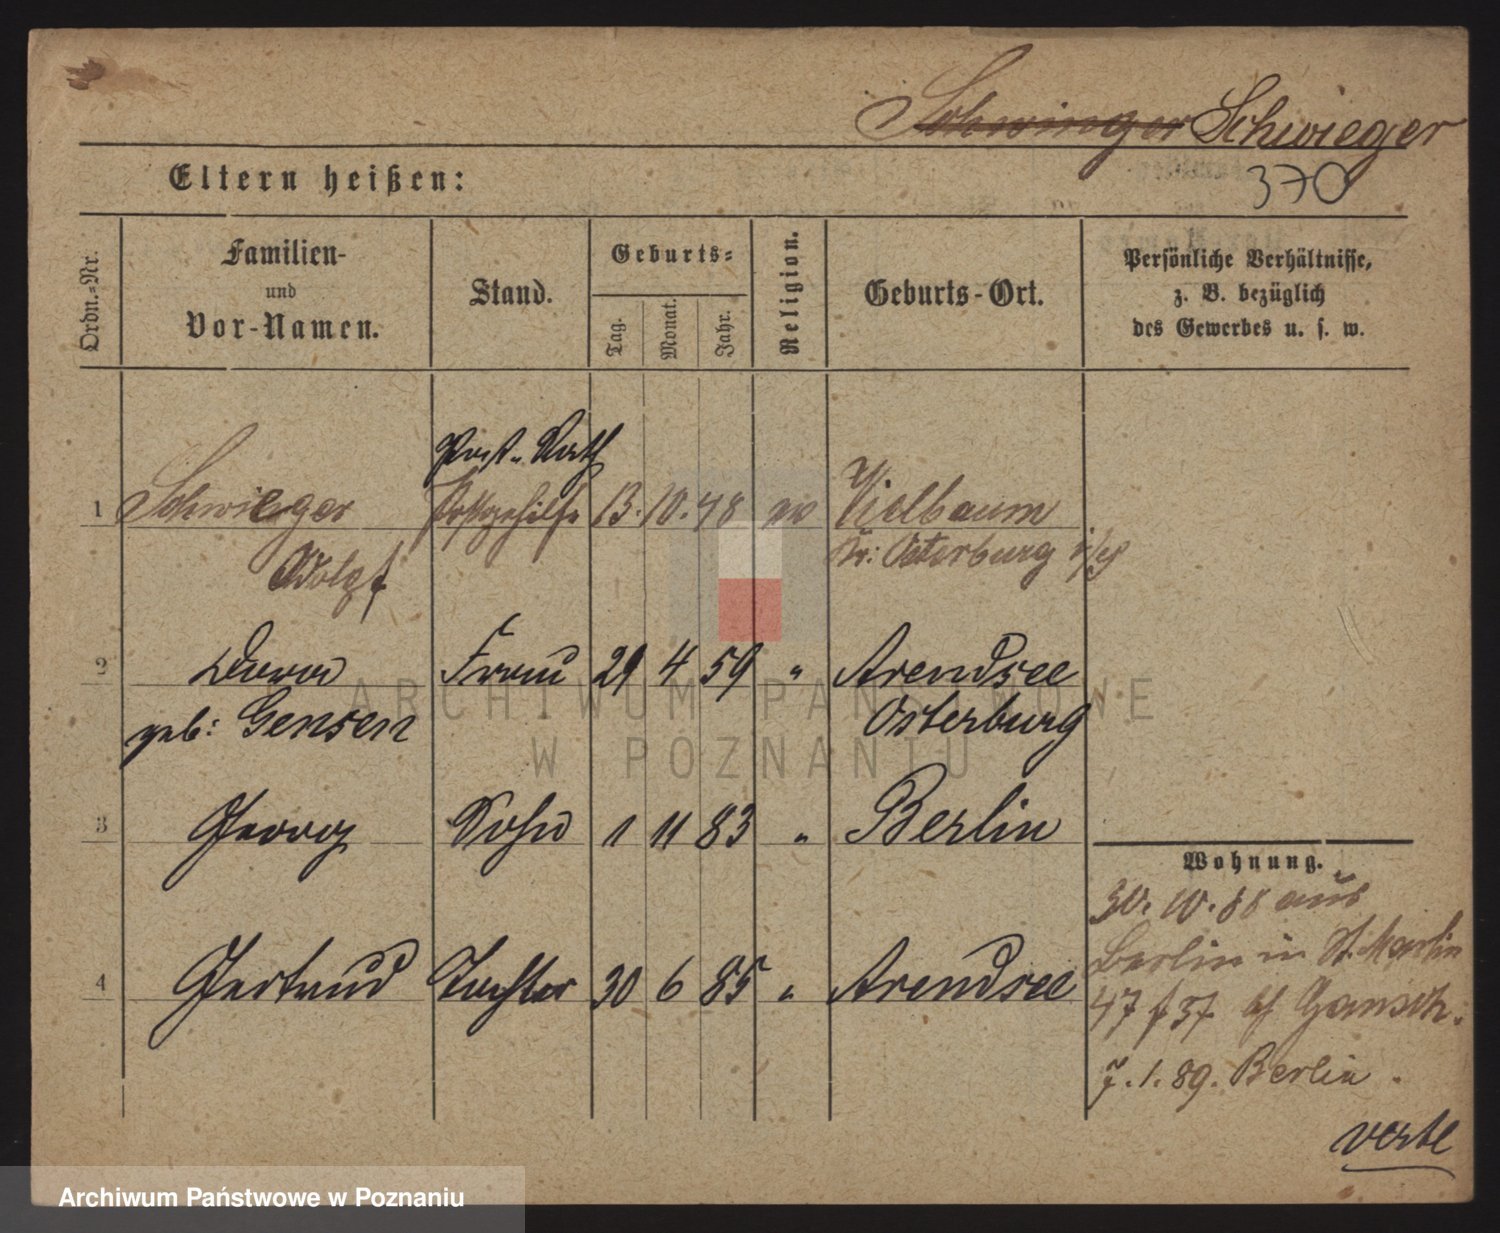 Schwinger Schwieger
Eltern heißen:
370
Ordn.-Nr.
Familien-
und
Vor-Namen.
Stand.
Geburts-
Tag.
Monat.
Jahr.
Religion.
Geburts-Ort.
Persönliche Verhältnisse,
z. B. bezüglich
des Gewerbes u. s. w.
Post-Rath
1 Schwieger Postgehilfe 13. 10. 48 ev Vielbaum
Adolf Kr: Osterburg
2 Dora Frau 29 4 59 " Arendsee
geb: Gensen Osterburg
3 Georg Sohn 1 11 83 " Berlin
Wohnung.
30. 10. 88 aus
Berlin in St. Martin
4 Gertrud Tochter 30 6 85 " Arendsee
47 37 Gansch.
7. 1. 89. Berlin.
verte
ARCHIWUM PAŃSTWOWE
W POZNANIU
Archiwum Państwowe w Poznaniu